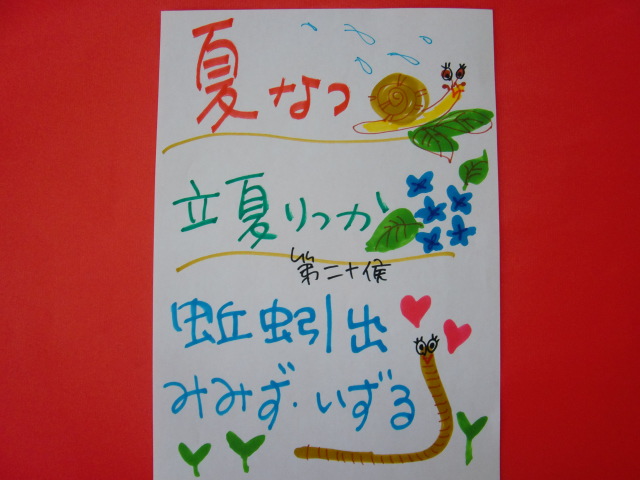 夏なつ
立夏りっか
第二十候
蚯蚓引出
みみず・いずる